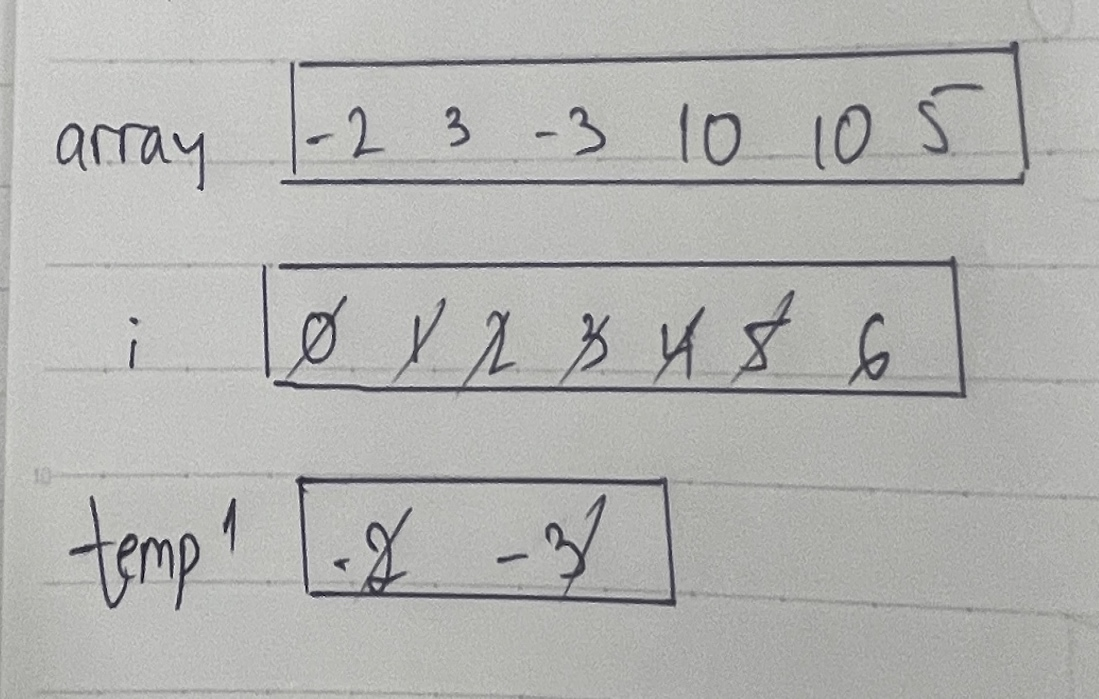 array -2 3 -3 10 10 5
i 0 1 2 3 4 5 6
10
temp1 -2 -3